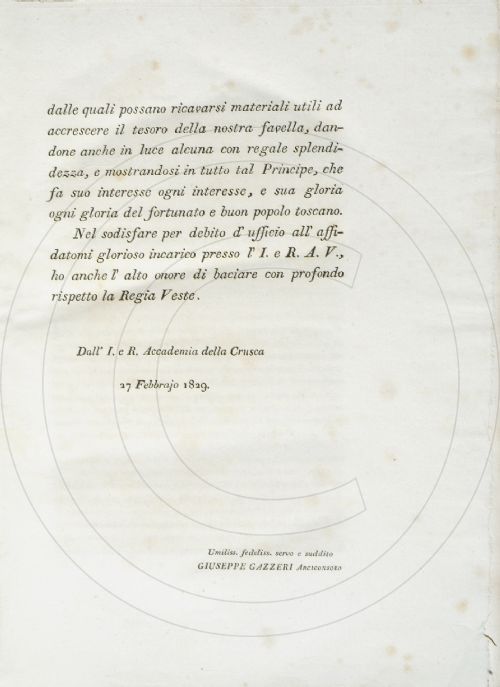 dalle quali possano ricavarsi materiali utili ad
accrescere il tesoro della nostra favella, dan-
done anche in luce alcuna con regale splendi-
dezza, e mostrandosi in tutto tal Principe, che
fa suo interesse ogni interesse, e sua gloria
ogni gloria del fortunato e buon popolo toscano.
Nel sodisfare per debito d' ufficio all' affi-
datomi glorioso incarico presso l' I. e R. A. V.,
ho anche l' alto onore di baciare con profondo
rispetto la Regia Veste.
Dall' I. e R. Accademia della Crusca
27 Febbrajo 1829.
Umiliss. fedeliss. servo e suddito
GIUSEPPE GAZZERI Arciconsolo